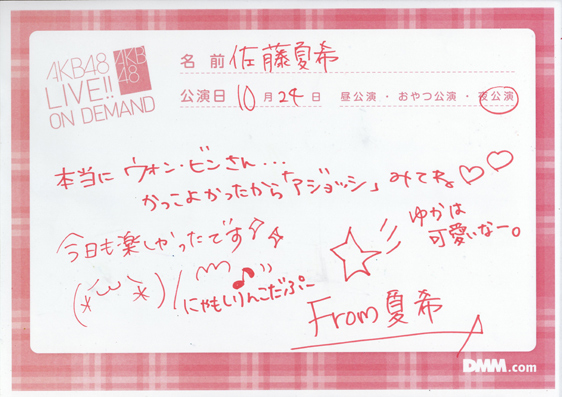 AKB48
LIVE!!
ON DEMAND
AKB
48
名前 佐藤夏希
公演日 10月24日 昼公演・おやつ公演・夜公演
本当に ウォン・ビンさん...
かっこよかったから「アジョッシ」みてね♡♡
今日も楽しかったです
ゆかは
可愛いなー。
にゃもしりんこだぷー
From夏希
DMM.com